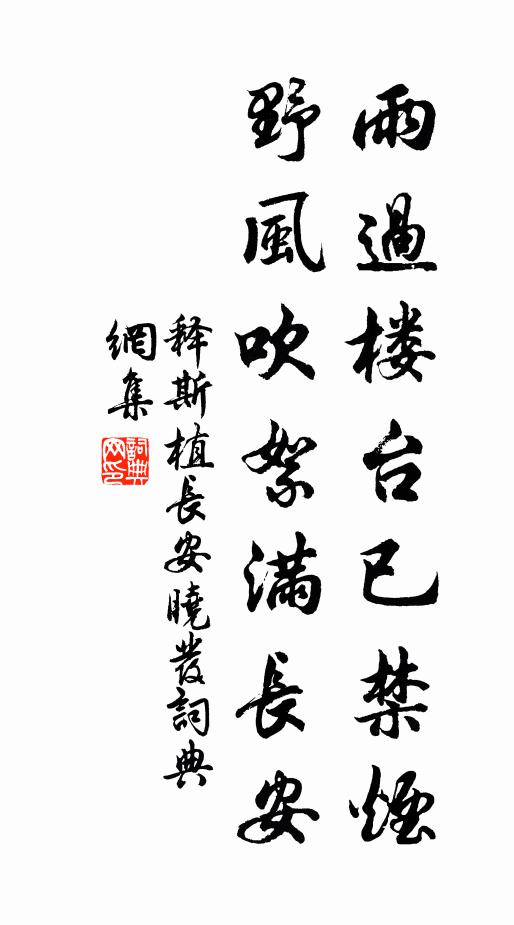 雨過楼台已禁煙
野風吹絮滿長安
释斯植長安曉發詞典
網集
詞典
网印